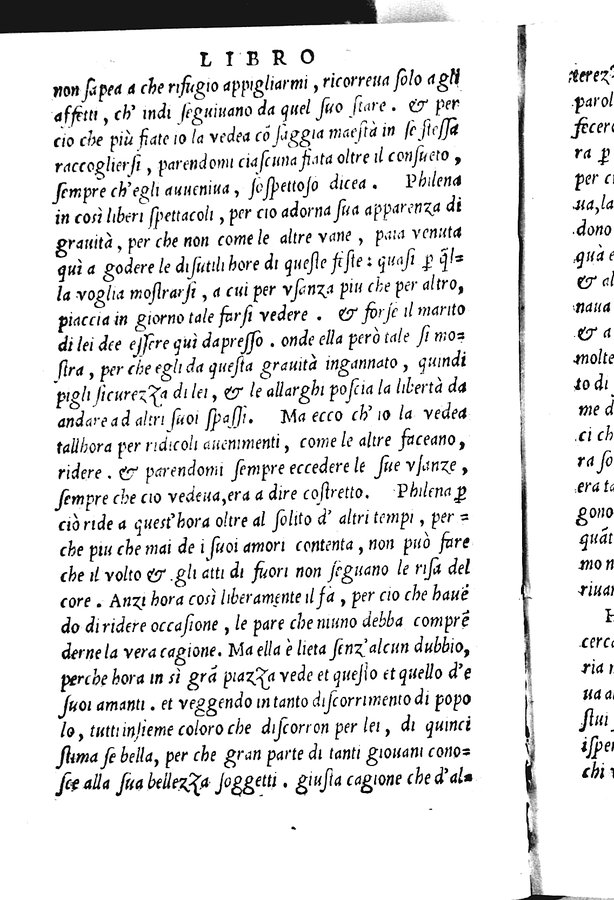 LIBRO
non sapea a che rifugio appigliarmi, ricorreua solo agli
affetti, ch' indi seguiuano da quel suo stare. & per
cio che più fiate io la vedea cõ saggia maestà in se stessa
raccogliersi, parendomi ciascuna fiata oltre il consueto,
sempre ch'egli auueniua, sospettoso dicea. Philena
in così liberi spettacoli, per cio adorna sua apparenza di
grauità, per che non come le altre vane, paia venuta
quì a godere le disutili hore di queste feste: quasi ꝑ q̃l=
la voglia mostrarsi, a cui per vsanza piu che per altro,
piaccia in giorno tale farsi vedere. & forse il marito
di lei dee essere quì dapresso. onde ella però tale si mo=
stra, per che egli da questa grauità ingannato, quindi
pigli sicurezza di lei, & le allarghi poscia la libertà da
andare ad altri suoi spassi. Ma ecco ch' io la vedea
tallhora per ridicoli auenimenti, come le altre faceano,
ridere. & parendomi sempre eccedere le sue vsanze,
sempre che cio vedeua, era a dire costretto. Philena ꝑ
ciò ride a quest'hora oltre al solito d' altri tempi, per=
che piu che mai de i suoi amori contenta, non può fare
che il volto & gli atti di fuori non seguano le risa del
core. Anzi hora così liberamente il fà, per cio che hauẽ
do di ridere occasione, le pare che niuno debba comprẽ
derne la vera cagione. Ma ella è lieta senz'alcun dubbio,
perche hora in sì grã piazza vede et questo et quello d'e
suoi amanti. et veggendo in tanto discorrimento di popo
lo, tutti insieme coloro che discorron per lei, di quinci
stima se bella, per che gran parte di tanti giouani cono=
sce alla sua bellezza soggetti. giusta cagione che d'al=
terez
parol
fecero
ra ꝑ
per ci
ua, la
dono
quà e
& al
naua
& a
molte
to di
me d
ci ch
ra so
era ta
gono
quãt
mo n
riuan
cerca
ria n
ua al
stui
ispe
chi v